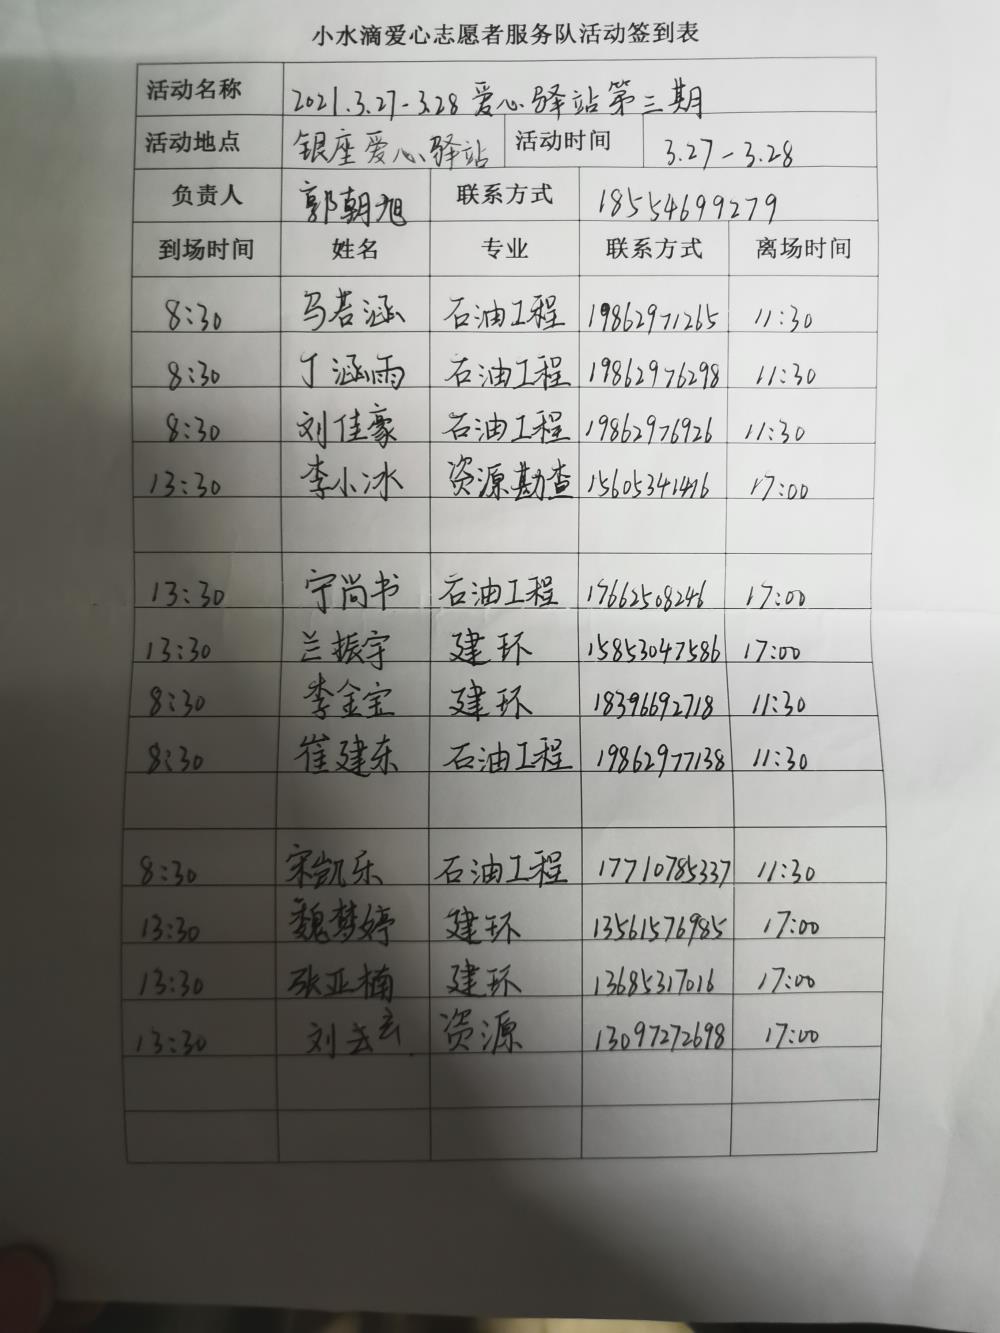 小水滴爱心志愿者服务队活动签到表
活动名称 2021.3.27-3.28 爱心驿站第三期
活动地点 银座爱心驿站 活动时间 3.27-3.28
负责人 郭朝旭 联系方式 18554699279
到场时间 姓名 专业 联系方式 离场时间
8:30 马若涵 石油工程 19862971265 11:30
8:30 丁涵雨 石油工程 19862976298 11:30
8:30 刘佳豪 石油工程 19862976926 11:30
13:30 李小冰 资源勘查 15605341416 17:00
13:30 宁尚书 石油工程 17662508246 17:00
13:30 兰振宇 建环 15853047586 17:00
8:30 李金宝 建环 18396692718 11:30
8:30 崔建东 石油工程 19862977138 11:30
8:30 宋凯乐 石油工程 17710785337 11:30
13:30 魏梦婷 建环 13561576985 17:00
13:30 张亚楠 建环 13685317016 17:00
13:30 刘 资源 13097272698 17:00